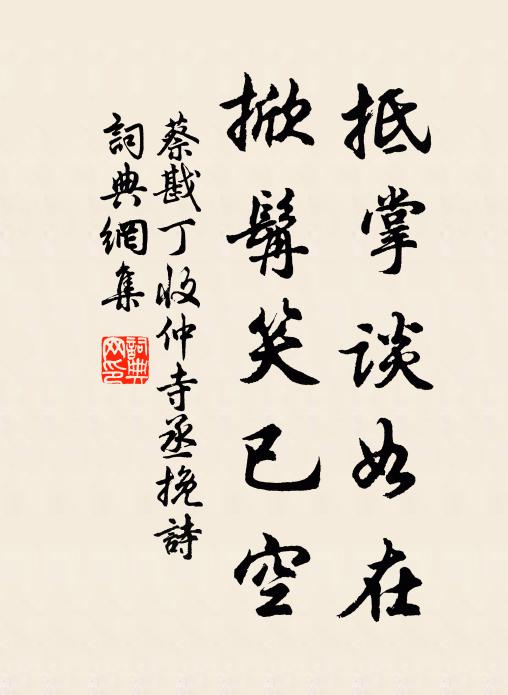 抵掌談如在
掀髯笑已空
蔡戡丁收仲寺丞挽詩
詞典網集
詞典
网印